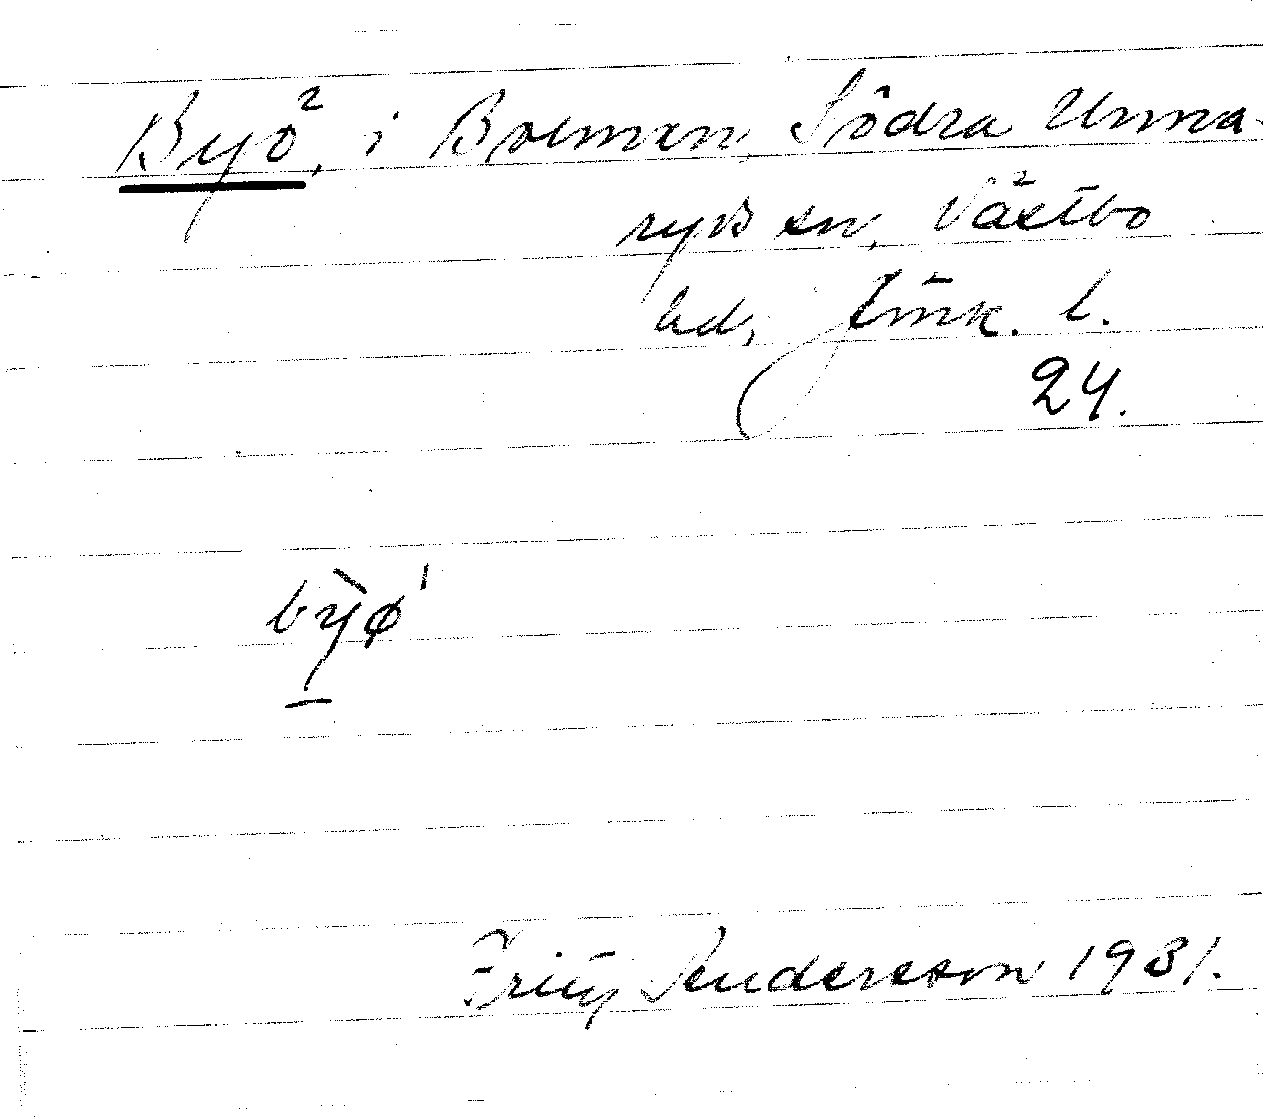 Byö, i Bolmen, Södra Unna-
ryds sn, Västbo
hd, Jönk. l.
24.
bỳ̱ø¹
Fritz Andersson 1931.